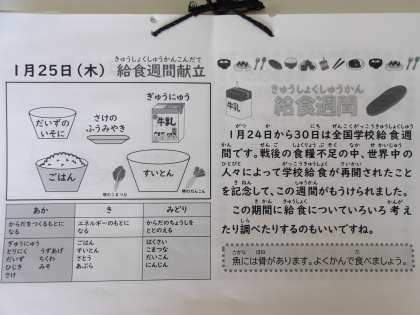 きゅうしょくしゅうかんこんだて
1月25日(木) 給食週間献立
だいずの
いそに
さけの
ふうみやき
ぎゅうにゅう
牛乳
ごはん
すいとん
あか き みどり
からだをつくるもとに
なる
エネルギーのもとに
なる
からだのちょうしを
ととのえる
ぎゅうにゅう
とりにく うすあげ
だいず ちくわ
ひじき みそ
さけ
ごはん
すいとん
さとう
あぶら
はくさい
こまつな
だいこん
にんじん
牛乳
きゅうしょくしゅうかん
給食週間
1月24日から30日は全国学校給食週
間です。戦後の食糧不足の中、世界中の
人々によって学校給食が再開されたこと
を記念して、この週間がもうけられました。
この期間に給食についていろいろ考え
たり調べたりするのもいいですね。
魚には骨があります。よくかんで食べましょう。